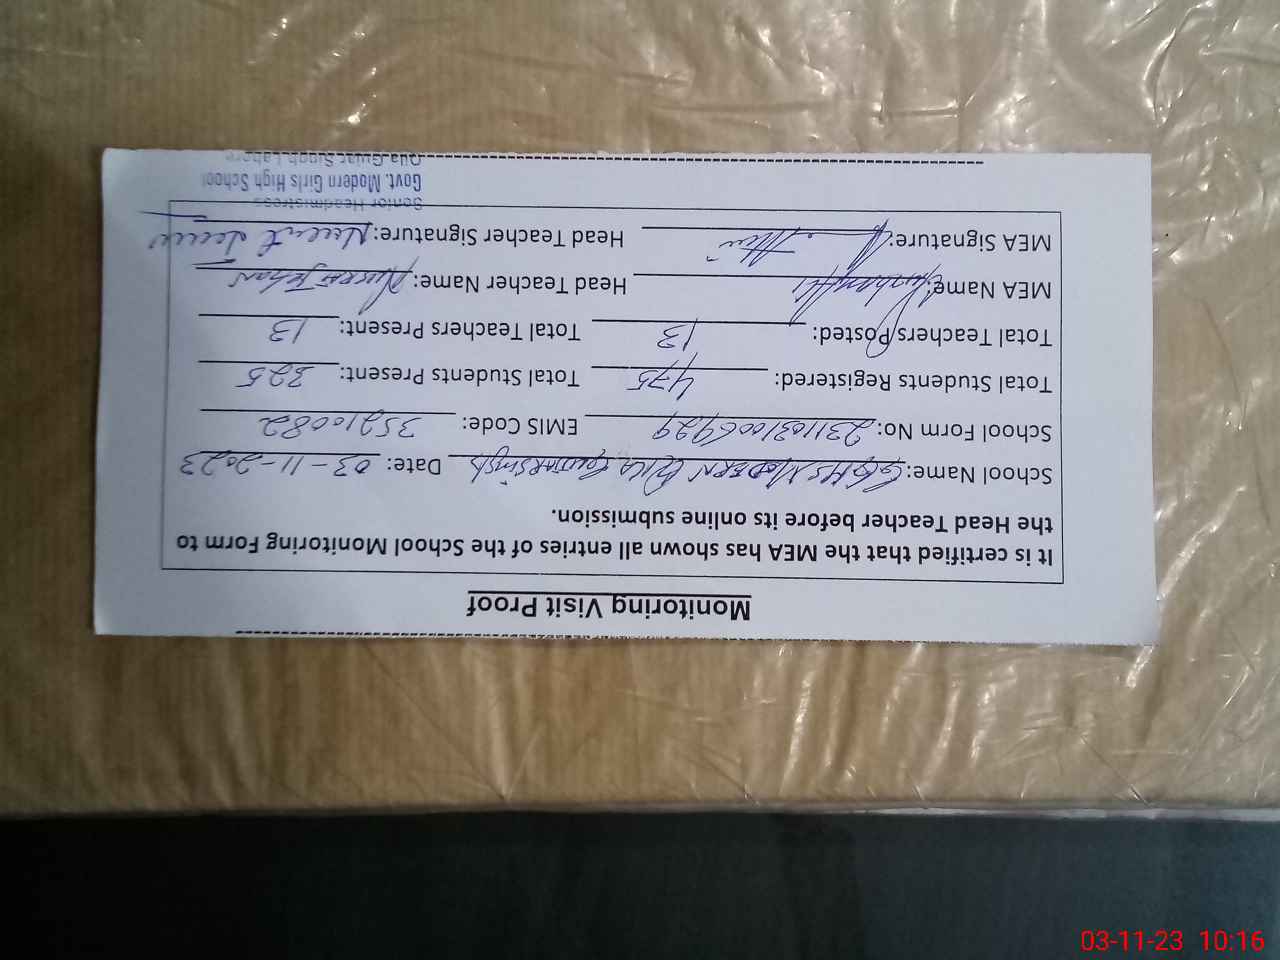 Monitoring Visit Proof
It is certified that the MEA has shown all entries of the School Monitoring Form to
the Head Teacher before its online submission.
School Name: GGHS MODERN QILA GUJJAR SINGH Date: 03-11-2023
School Form No: 2311031006929 EMIS Code: 35210082
Total Students Registered: 475 Total Students Present: 325
Total Teachers Posted: 13 Total Teachers Present: 13
MEA Name: Head Teacher Name: Nusrat Jehan
MEA Signature: Head Teacher Signature:
Senior Headmistress
Govt. Modern Girls High School
Qila Gujar Singh Lahore
03-11-23 10:16